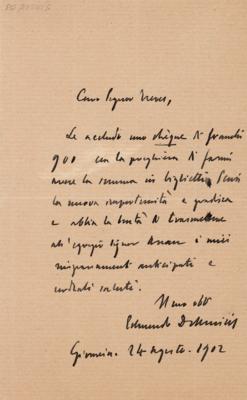 Caro Signor Treves,
Le accludo uno chèque di franchi
900 con la preghiera di farmi
avere la somma in biglietti. Scusi
la nuova importunità e gradisca
e abbia la bontà di trasmettere
all'egregio signor i miei
ringraziamenti anticipati e
cordiali saluti.
Edmondo De Amicis
24 agosto. 1902